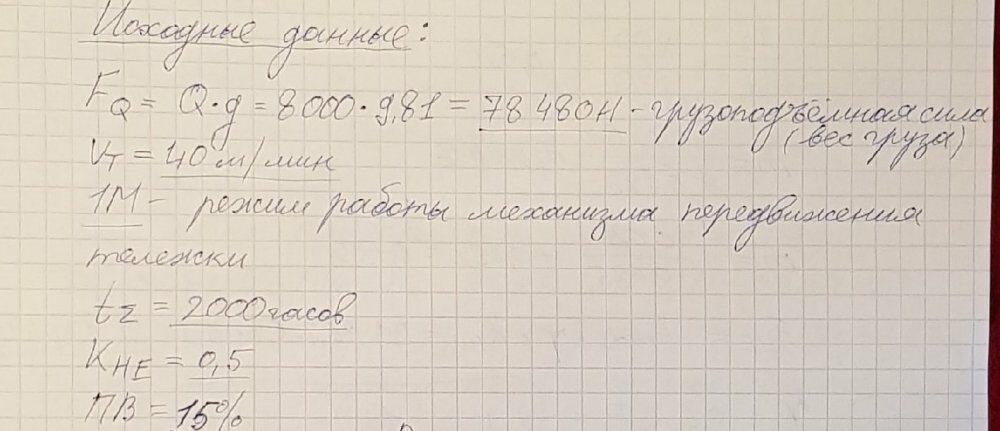 Исходные данные:
F_Q = Q·g = 8000·9,81 = 78 480Н - грузоподъёмная сила
(вес груза)
V_T = 40 м/мин
1М - режим работы механизма передвижения
тележки
t_Σ = 2000 часов
K_HE = 0,5
ПВ = 15%